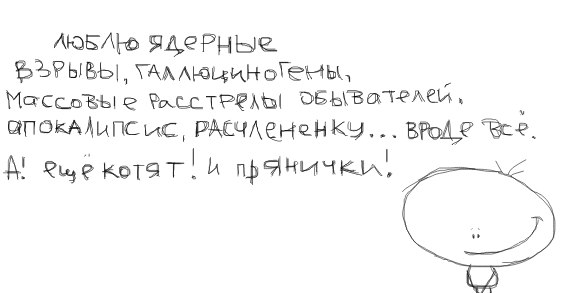 люблю ядерные
взрывы, галлюциногены,
массовые расстрелы обывателей.
апокалипсис, расчлененку... вроде всё.
А! ещё котят! и прянички!